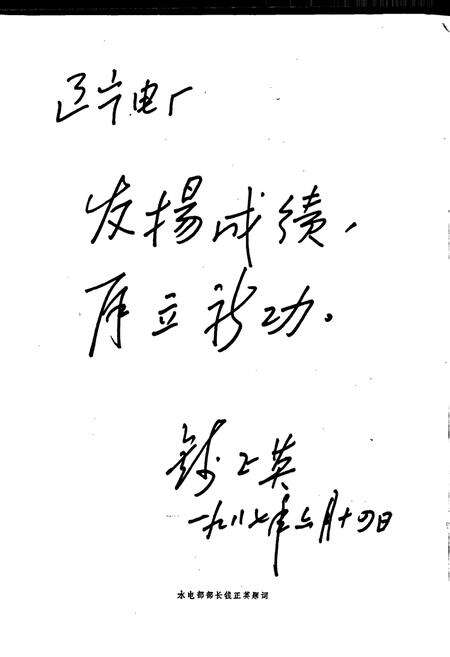 辽宁电厂
发揚成绩，
再立新功。
钱正英
一九八七年六月十四日
水电部部长钱正英题词